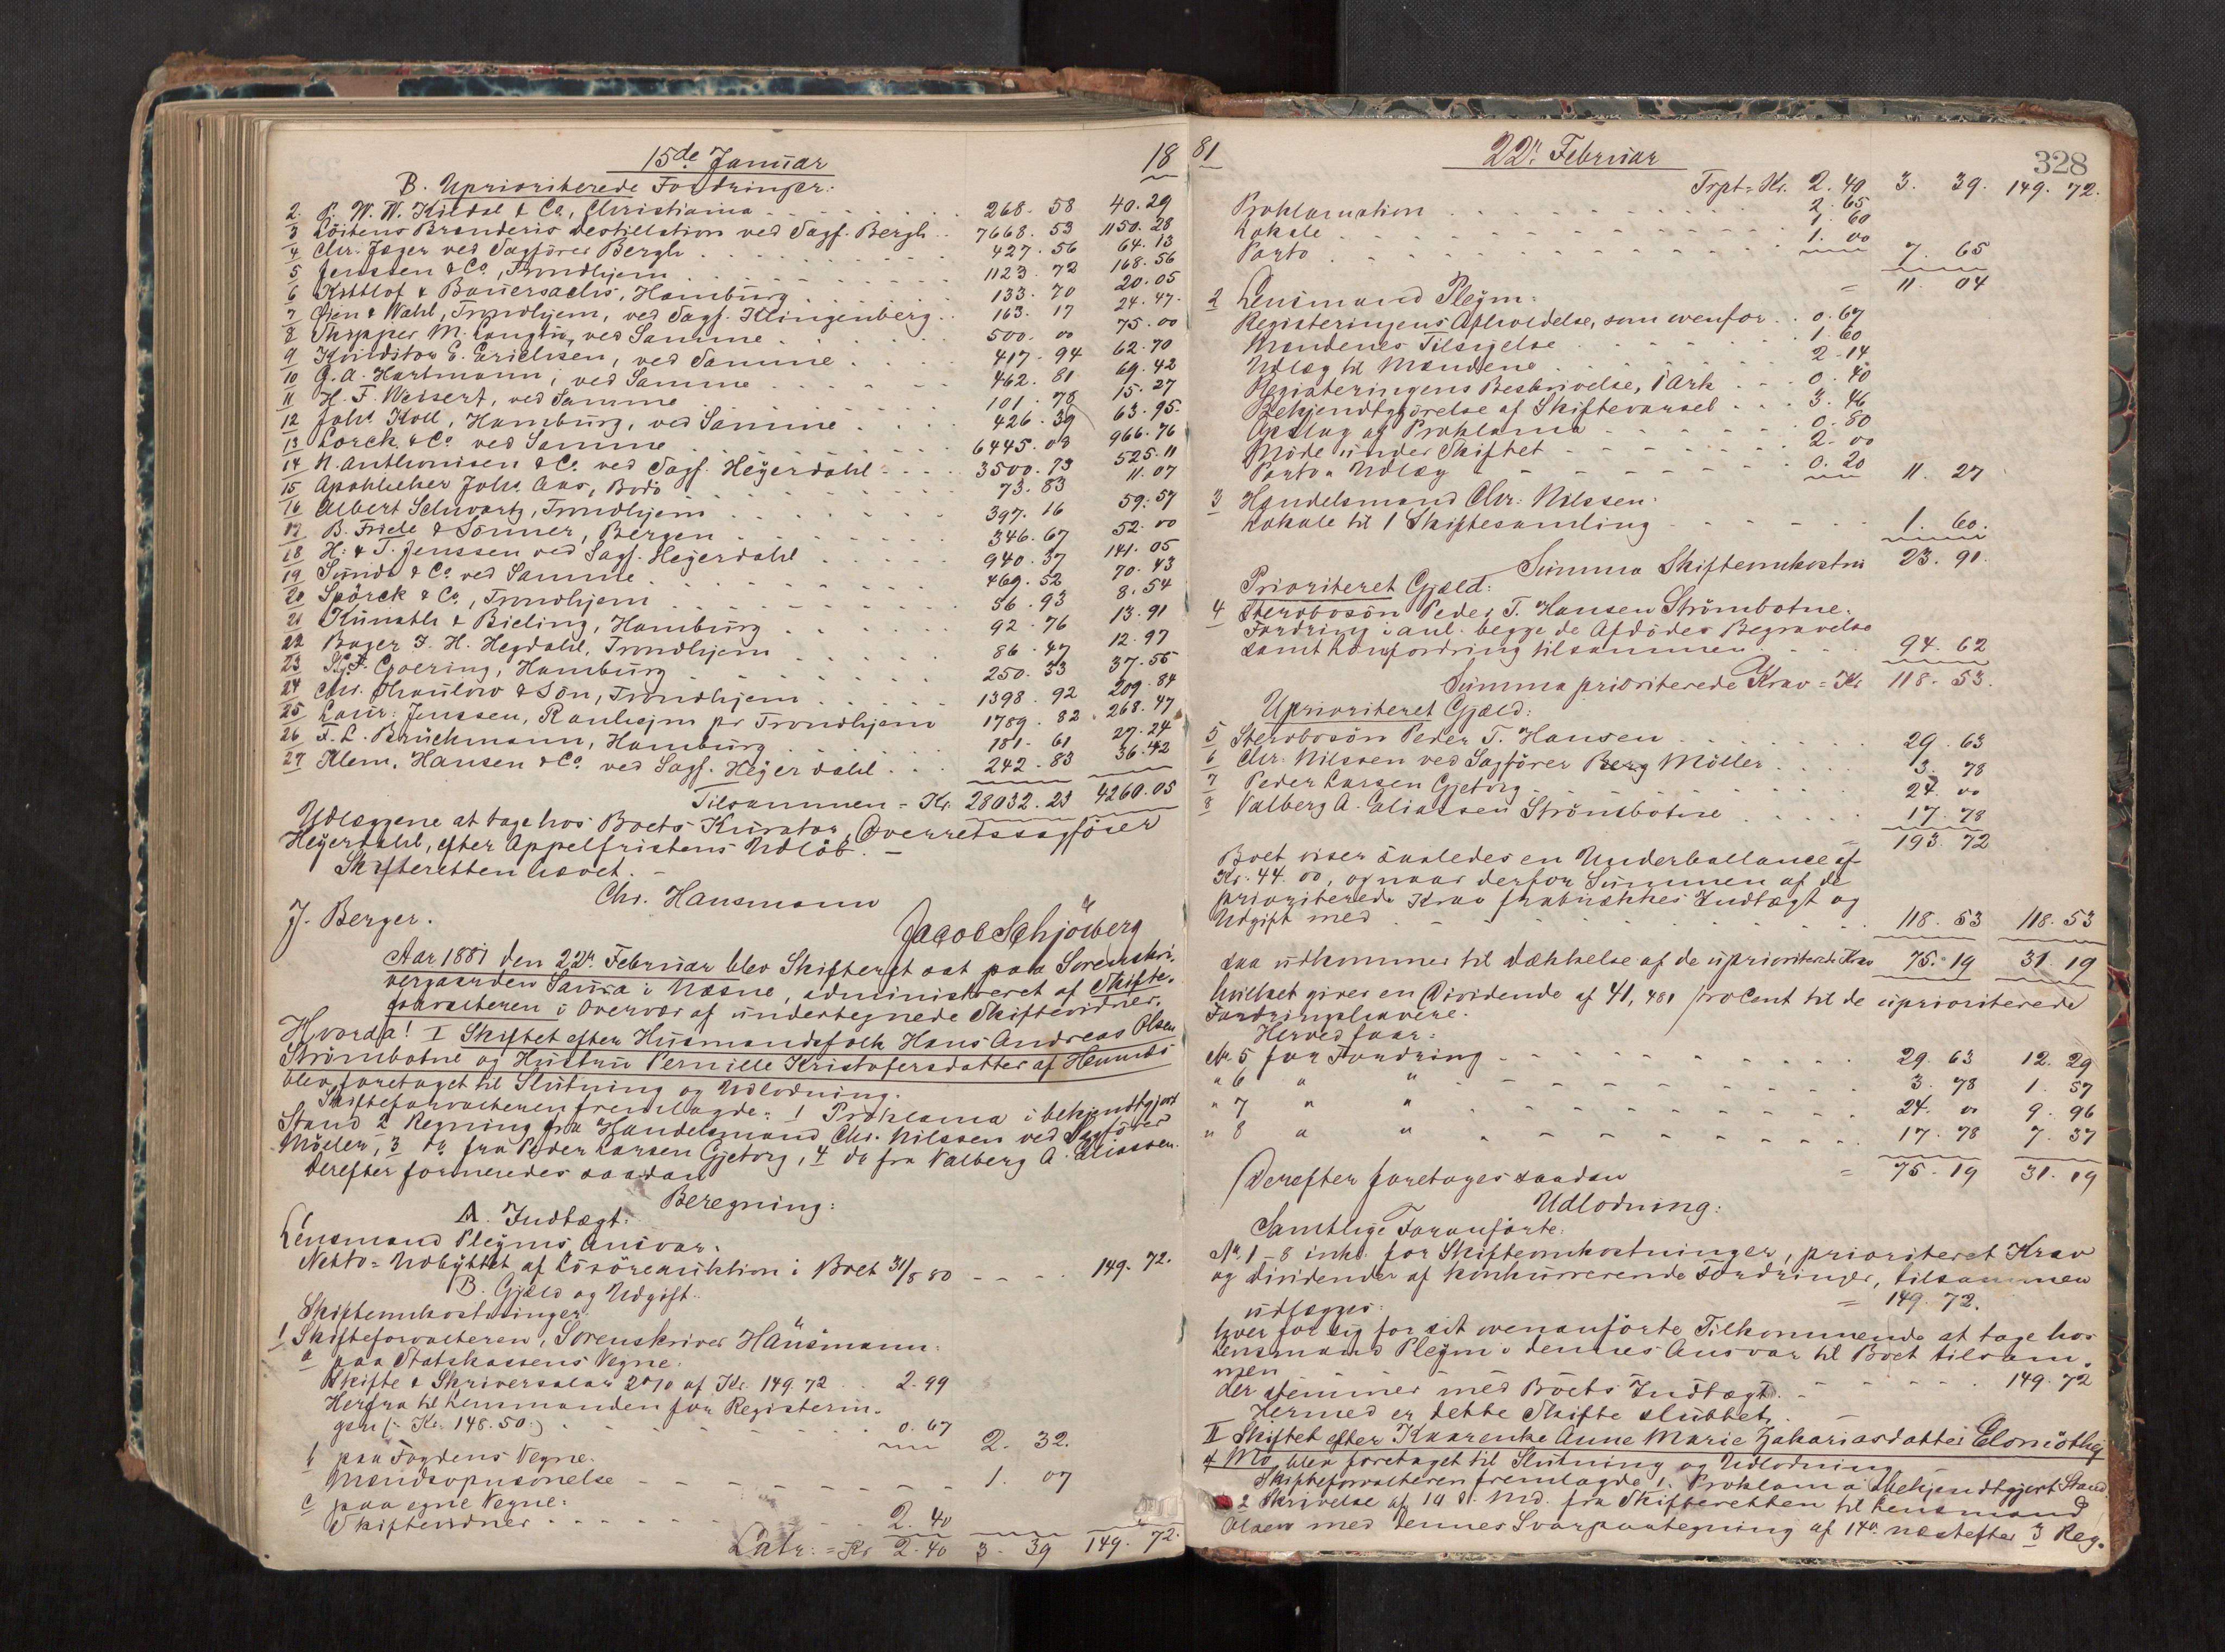 15de Januar 18
B. Uprioriterede Fordringer:
2. P. W. W. Kildal & Co, Christiania 268. 58 40. 29
3 Löitens Brænderis Destillation ved Sagf. Bergh 7668. 53 1150. 28
4 Chr. Jæger ved Sagförer Bergh 427. 56 64. 13
5 Jenssen & Co, Trondhjem 1123. 72 168. 56
6 & Bauersachs, Hamburg 133. 70 20. 05
7 & Wahl, Trondhjem, ved Sagf. Klingenberg 163. 17 24. 47.
8 Skipper M. ved Samme 500. 00 75. 00
9 Konditor E. Erichsen, ved Samme 417. 94 62. 70
10 G. A. Hartmann, ved Samme 462. 81 69. 42
11 H. F. Weisert, ved Samme 101. 78 15. 27
12 Johs Koll, Hamburg, ved Samme 426. 39 63. 95.
13 Lorck & Co ved Samme 6445. 03 966. 76
14 N. Anthonisen & Co ved Sagf. Heÿerdahl 3500. 73 525. 11
15 Apotheker Johs Aas, Bodö 73. 83 11. 07
16 Albert Schwartz, Trondhjem 397. 16 59. 57
17 B. Friele & Sönner, Bergen 346. 67 52. 00
18 H: & T. Jenssen ved Sagf. Heÿerdahl 940. 37 141. 05
19 Sunde & Co ved Samme 469. 52 70. 43
20 Spörck & Co, Trondhjem 56. 93 8. 54
21 Kunath & Bieling, Hamburg 92. 76 13. 91
22 Bager F. H. Hegdahl, Trondhjem 86. 47 12. 97
23 Goering, Hamburg 250. 33 37. 55
24 Chr. Thaulow & Sön, Trondhjem 1398. 92 209. 84
25 Laur: Jenssen, Ranheim pr Trondhjem 1789. 82 268. 47
26 F. L. Brückmann, Hamburg 181. 61 27. 24
27 Klem, Hansen & Co ved Sagf. Heÿerdahl 242. 83 36. 42
Tilsammen = Kr. 28032. 23 4260. 05
Udlæggene at tage hos Boets Kurator, Overretssagförer
Heÿerdahl, efter Appelfristens Udlöb. –
Skifteretten hævet. –
Chr. Hansmann
J. Berger. Jacob Schjösberg
Aar 1881 den 22de Februar blev Skifteret sat paa Sorenskri-
vergaarden Saura i Næsne, administreret af Skifte-
forvalteren i Overvær af undertegnede Skiftevidner.
Hvorda! I Skiftet efter Husmandsfolk Hans Andreas Olsen
Strömbotne og Hustru Pernille Kristofersdatter af Hemnæs
blev foretaget til Slutning og Udlodning.
Skifteforvalteren fremlagde: 1 Proklama i bekjendtgjort
Stand 2 Regning fra Handelsmand Chr. Nilssen ved Sagförer
Möller, 3 do fra Peder Larsen Gjetvig, 4 do fra Valberg A. Eliassen.
Derefter formeredes saadan
Beregning:
A. Indtægt:
Lensmand Pleÿms Ansvar.
Netto-Udbÿttet af Lösöreauktion i Boet 31/8 80 149. 72.
B. Gjæld og Udgift.
Skifteomkostninger.
1 Skifteforvalteren, Sorenskriver Hansmann:
a paa Statskassens Vegne:
Skifte & Skriversalar 2% af Kr. 149. 72 2. 99
Herfra til Lensmanden for Registerin-
gen (: Kr. 148. 50:) 0. 67
2. 32.
b paa Fogdens Vegne.
Mandsopnævnelse 1. 07
c paa egne Vegne:
Skiftevidner 2. 40
Latr. = Kr 2. 40 3. 39 149. 72.
81 22de Februar 328
Trpt = Kr. 2. 40 3. 39. 149. 72.
Proklamation 2. 65
Lokale 1. 60
Porto 1. 00 7. 65
= 11. 04
2 Lensmand Pleÿm:
Registeringens Afholdelse, som ovenfor 0. 67
Mændenes Tilsigelse 1. 60
Udlæg til Mændene 2. 14
Registeringens Beskrivelse, 1 Ark 0. 40
Bekjendtgjörelse af Skiftevarsel 3. 46
Opslag af Proklama 0. 80
Möde under Skiftet 2. 00
Porto-Udlæg 0. 20 11. 27
3 Handelsmand Chr. Nilssen:
Lokale til 1 Skiftesamling 1. 60.
Summa Skifteomkostn 23. 91.
Prioriteret Gjæld:
4 Stervbosön Peder T. Hansen Strömbotne.
Fordring i anl. begge de Afdödes Begravelse
samt Lönfordring tilsammen 94. 62
Summa prioriterede Krav = Kr 118. 53.
Uprioriteret Gjæld:
5 Stervbosön Peder T. Hansen 29. 63
6 Chr. Nilssen ved Sagförer Berg Möller 3. 78
7 Peder Larsen Gjetvig 24. 00
8 Valberg A. Eliassen Strömsbotne 17. 78
= 193. 72
Boet viser saaledes en Underballance af
Kr. 44. 00, og naar derfor Summen af de
prioriterede Krav fratrækkes Indtægt og
Udgift med 118. 53 118. 53
saa udkommer til Dækkelse af de uprioriterede Krav 75. 19 31. 19
hvilket giver en Dividende af 41,481 proCent til de uprioriterede
Fordringshavere.
Herved faar:
No. 5 for Fordring 29. 63 12. 29
" 6 " " 3. 78 1. 57
" 7 " " 24. 00 9. 96
" 8 " " 17. 78 7. 37
= 75. 19 31. 19
Derefter foretages saadan
Udlodning:
Samtlige Foranförte:
No. 1 – 8 inkl. for Skifteomkostninger, prioriteret Krav
og Dividender af konkurrerende Fordringer, tilsammen
= 149. 72.
udlægges:
hver for sig for sit ovenanförte Tilkommende at tage hos
Lensmand Pleÿm i dennes Ansvar til Boet tilsam-
men 149. 72
der stemmer med Boets Indtægt. –
Hermed er dette Skifte sluttet. –
II Skiftet efter Kaarenke Anne Marie Zakariasdatter
af Mo blev foretaget til Slutning og Udlodning
Skifteforvalteren fremlagde 1. Proklama i bekjendtgjort Stand
2 Skrivelse af d. Md. fra Skifteretten til Lensmand
Olsen med dennes Svarpaategning af 14de næstefter 3 Reg-